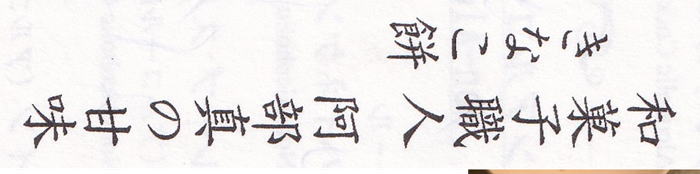 和菓子職人 阿部真の甘味
きなこ餅